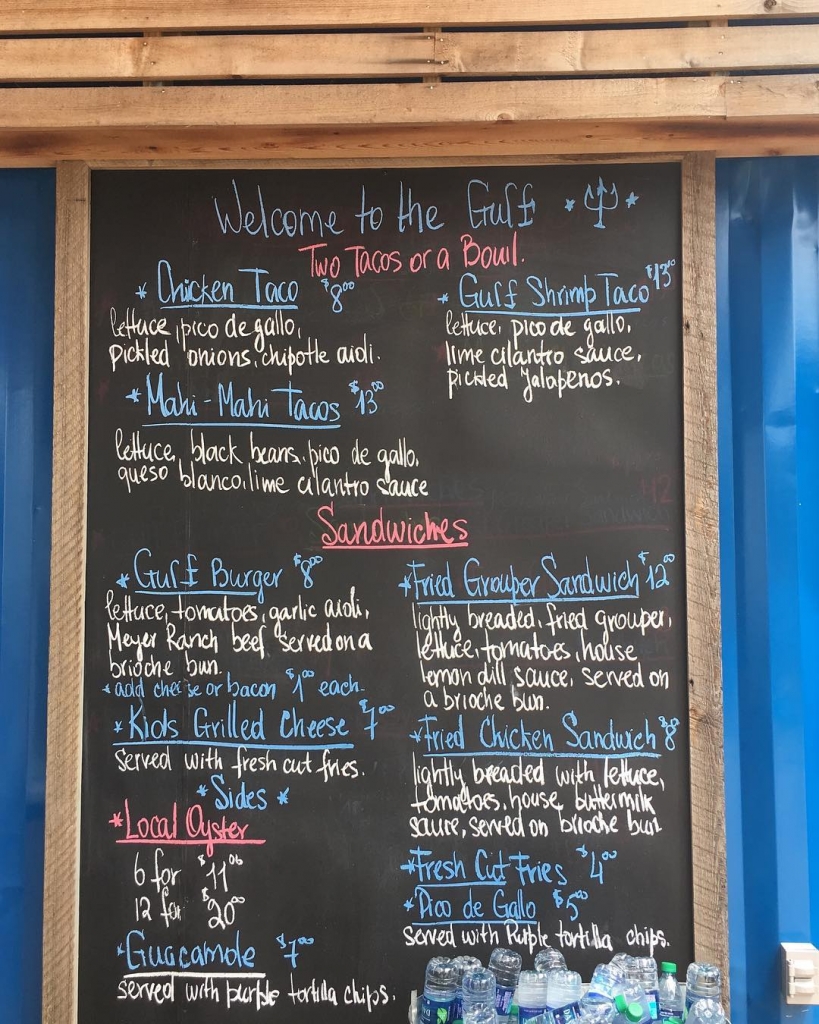 Welcome to the Gulf
Two Tacos or a Bowl.
* Chicken Taco $8⁰⁰
lettuce, pico de gallo,
pickled onions, chipotle aioli.
* Gulf Shrimp Taco $13⁰⁰
lettuce, pico de gallo,
lime cilantro sauce,
pickled Jalapenos.
* Mahi-Mahi Tacos $13⁰⁰
lettuce, black beans, pico de gallo,
queso blanco, lime cilantro sauce
Sandwiches
* Gulf Burger $8⁰⁰
lettuce, tomatoes, garlic aioli,
Meyer Ranch beef, served on a
brioche bun.
* add cheese or bacon $1⁰⁰ each.
* Kids Grilled Cheese $7⁰⁰
Served with fresh cut fries.
* Fried Grouper Sandwich $12⁰⁰
lightly breaded, fried grouper,
lettuce, tomatoes, house
lemon dill sauce, served on
a brioche bun.
* Fried Chicken Sandwich $8⁰⁰
lightly breaded with lettuce,
tomatoes, house buttermilk
sauce, served on brioche bun
* Sides *
* Local Oyster
6 for $11⁰⁰
12 for $20⁰⁰
* Guacamole $7⁰⁰
served with purple tortilla chips.
* Fresh Cut Fries $4⁰⁰
* Pico de Gallo $5⁰⁰
served with Purple tortilla chips.